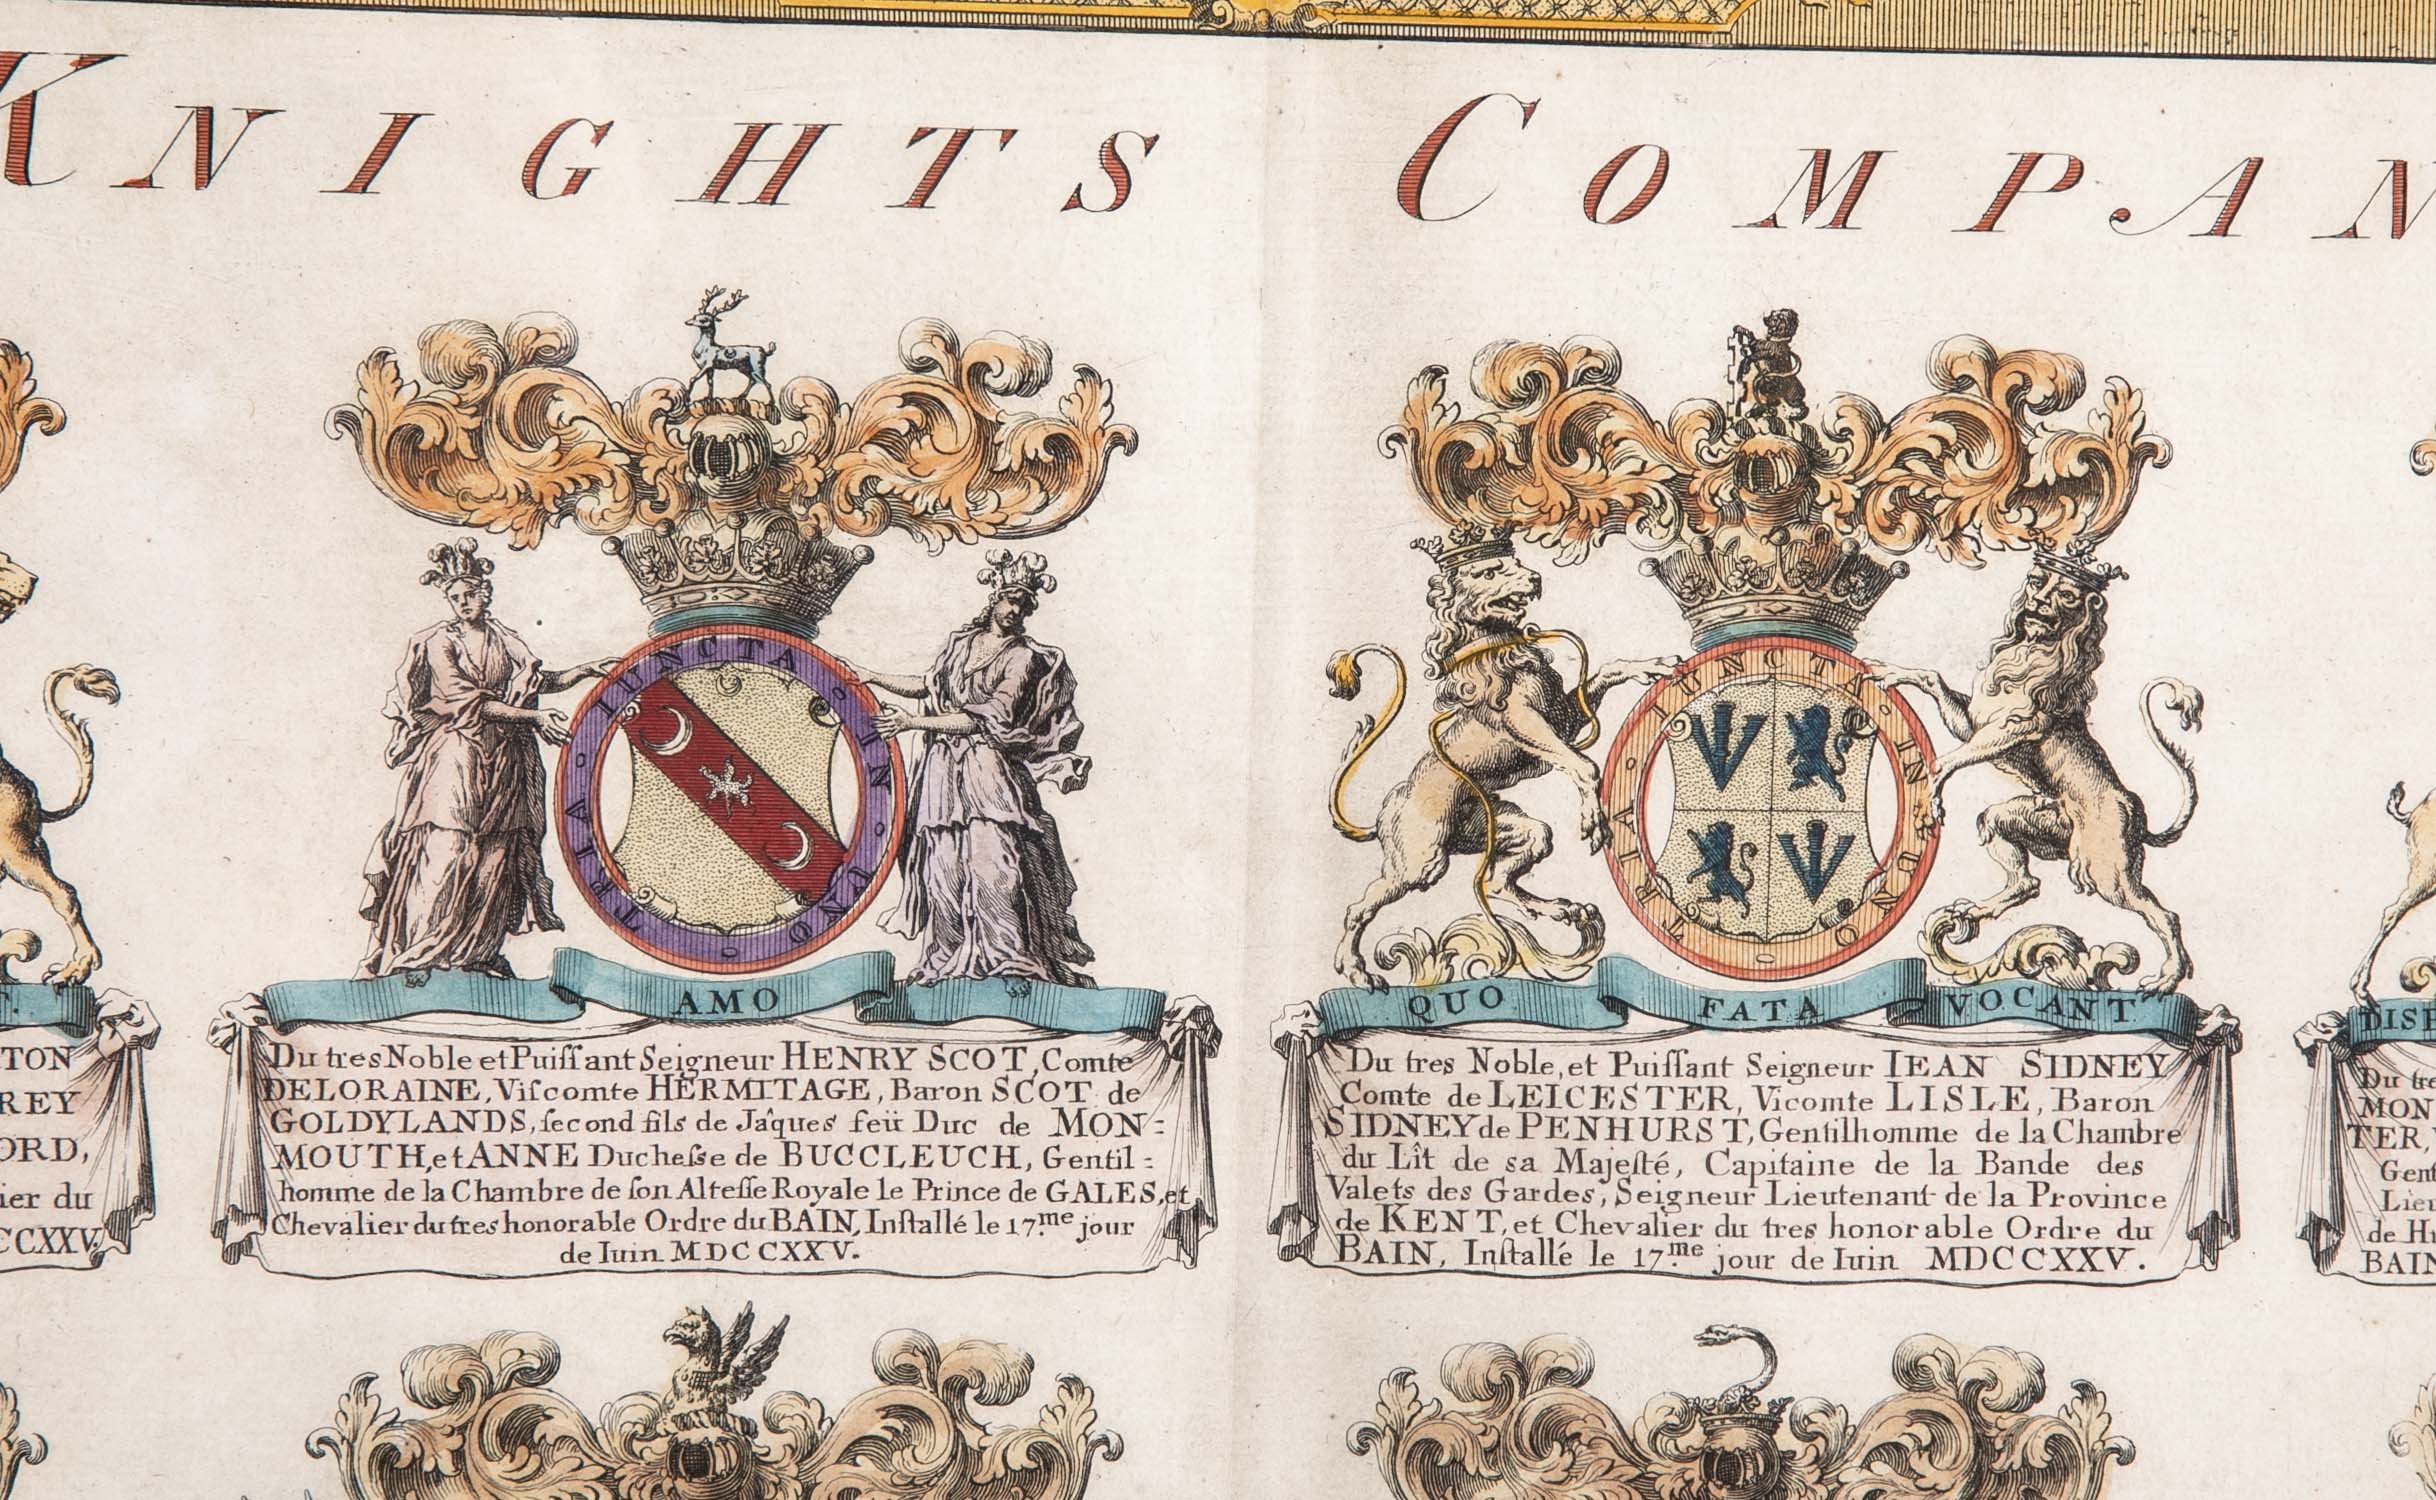 KNIGHTS COMPAN
TRIA · IUNCTA · IN · UNO
AMO
Du tres Noble et Puiſſant Seigneur HENRY SCOT, Comte
DELORAINE, Viſcomte HERMITAGE, Baron SCOT de
GOLDYLANDS, ſecond fils de Jâques feü Duc de MON=
MOUTH, et ANNE Ducheſse de BUCCLEUCH, Gentil=
homme de la Chambre de ſon Alteſſe Royale le Prince de GALES, et
Chevalier du tres honorable Ordre du BAIN, Inſtallé le 17.me jour
de Iuin MDCCXXV.
TRIA · IUNCTA · IN · UNO
QUO FATA VOCANT
Du tres Noble, et Puiſſant Seigneur IEAN SIDNEY
Comte de LEICESTER, Vicomte LISLE, Baron
SIDNEY de PENHURST, Gentilhomme de la Chambre
du Lît de sa Majeſté, Capitaine de la Bande des
Valets des Gardes, Seigneur Lieutenant de la Province
de KENT, et Chevalier du tres honorable Ordre du
BAIN, Inſtallé le 17.me jour de Iuin MDCCXXV.
TON
REY
ORD,
ier du
CCXXV.
DISP
Du tre
MON
TER,
Gent
Lieu
de Hu
BAIN